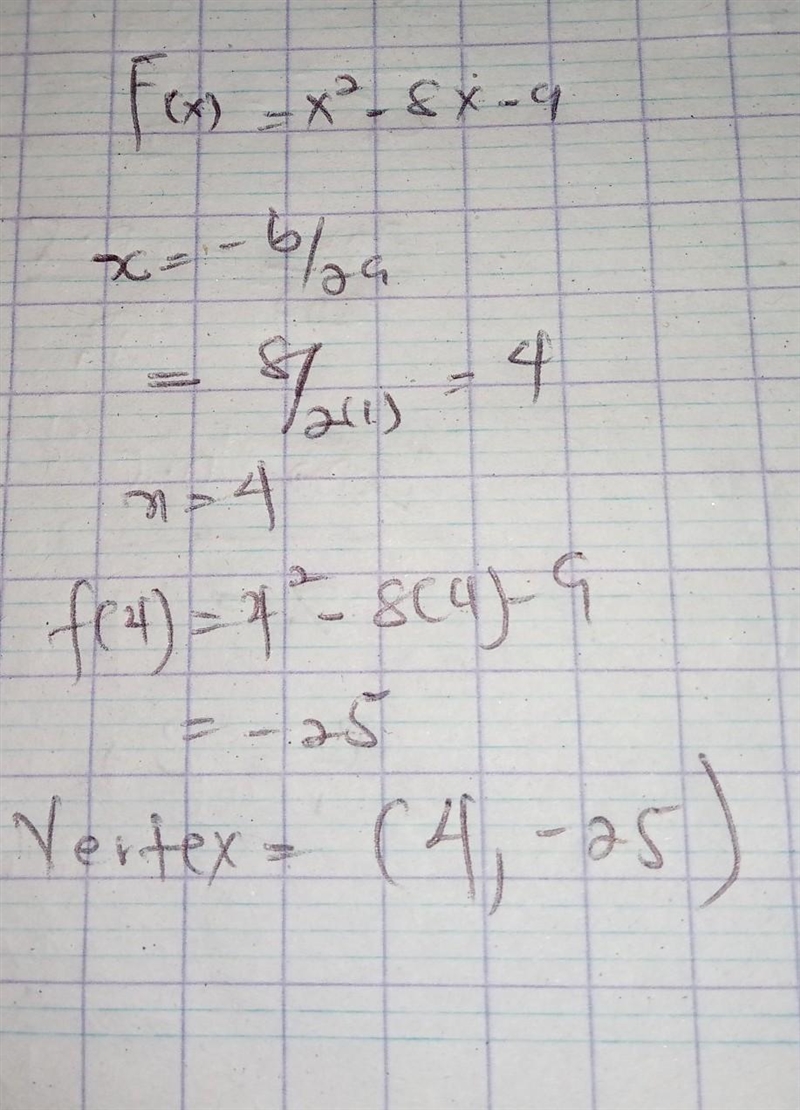 F(x) = x² - 8x - 9
x = -b/2a
= 8/2(1) = 4
x = 4
f(4) = 4² - 8(4) - 9
= -25
Vertex = (4, -25)